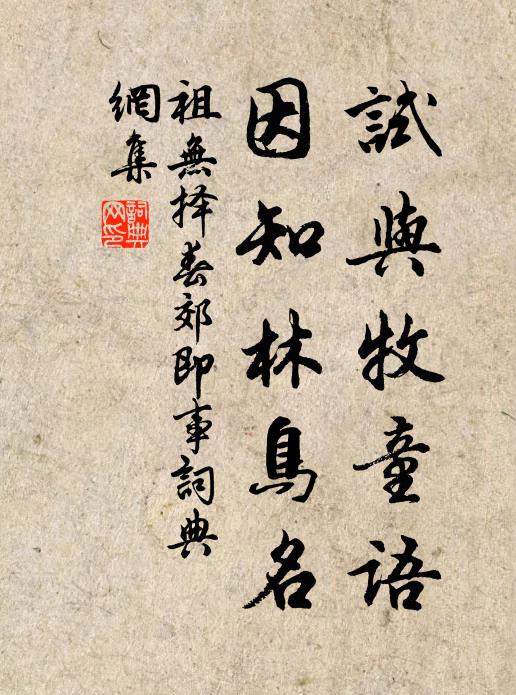 試與牧童語
因知林鳥名
祖無择春郊即事詞典
網集
詞典
网印